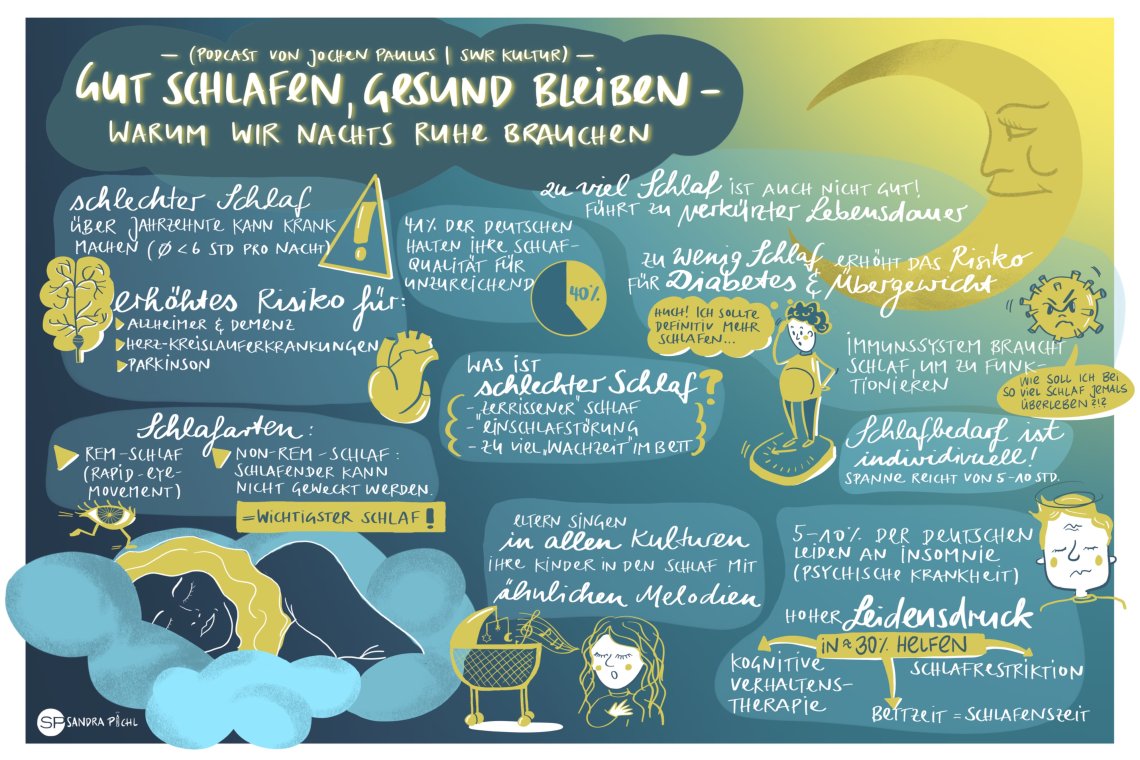 — (PODCAST VON JOCHEN PAULUS | SWR KULTUR) —
GUT SCHLAFEN, GESUND BLEIBEN –
WARUM WIR NACHTS RUHE BRAUCHEN
schlechter Schlaf
ÜBER JAHRZEHNTE KANN KRANK
MACHEN (Ø < 6 STD PRO NACHT)
!
erhöhtes Risiko für:
ALZHEIMER & DEMENZ
HERZ-KREISLAUFERKRANKUNGEN
PARKINSON
41% DER DEUTSCHEN
HALTEN IHRE SCHLAF-
QUALITÄT FÜR
UNZUREICHEND
40%
zu viel Schlaf IST AUCH NICHT GUT!
FÜHRT ZU verkürzter Lebensdauer
ZU WENIG Schlaf ERHÖHT DAS Risiko
FÜR Diabetes & Übergewicht
HUCH! ICH SOLLTE
DEFINITIV MEHR
SCHLAFEN...
IMMUNSSYSTEM BRAUCHT
SCHLAF, UM ZU FUNK-
TIONIEREN
WIE SOLL ICH BEI
SO VIEL SCHLAF JEMALS
ÜBERLEBEN?!?
WAS IST
schlechter Schlaf?
- "ZERRISSENER" SCHLAF
- "EINSCHLAFSTÖRUNG
- ZU VIEL „WACHZEIT" IM BETT
Schlafarten:
REM-SCHLAF
(RAPID-EYE-
MOVEMENT)
NON-REM-SCHLAF:
SCHLAFENDER KANN
NICHT GEWECKT WERDEN.
=WICHTIGSTER SCHLAF!
Schlafbedarf ist
individivuell!
SPANNE REICHT VON 5-10 STD.
ELTERN SINGEN
in allen Kulturen
IHRE KINDER IN DEN SCHLAF MIT
ähnlichen Melodien
5-10% DER DEUTSCHEN
LEIDEN AN INSOMNIE
(PSYCHISCHE KRANKHEIT)
HOHER Leidensdruck
IN ≈ 30% HELFEN
KOGNITIVE
VERHALTENS-
THERAPIE
SCHLAFRESTRIKTION
BETTZEIT = SCHLAFENSZEIT
SP SANDRA PICHL